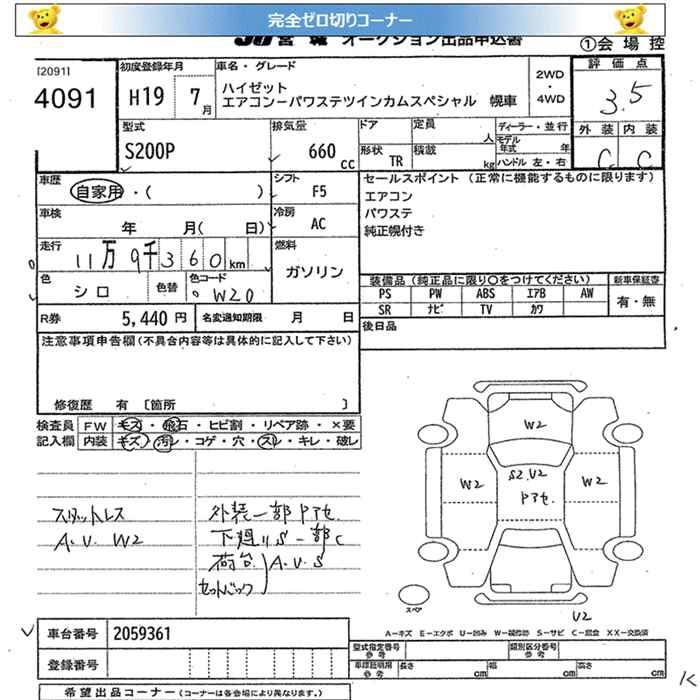 完全ゼロ切りコーナー
JU 宮城 オークション出品申込書
①会場控
[2091]
4091
初度登録年月
H19 7月
車名・グレード
ハイゼット
エアコンーパワステツインカムスペシャル 幌車
2WD
・
4WD
評価点
3.5
型式
S200P
排気量
660 cc
ドア
定員
人
形状
TR
積載
kg
ディーラー・並行
モデル年式 年
ハンドル 左・右
外装 内装
C C
車歴
自家用・( )
シフト
F5
車検
年 月( 日)
冷房
AC
走行
11万9千360km
燃料
ガソリン
色
シロ
色替
色コード
W20
R券
5,440円
名変通知期限 月 日
セールスポイント (正常に機能するものに限ります)
エアコン
パワステ
純正幌付き
装備品(純正品に限り○をつけてください)
新車保証書
PS PW ABS エアB AW
SR ナビ TV カワ
有・無
後日品
注意事項申告欄(不具合内容等は具体的に記入して下さい)
修復歴 有 〔箇所 〕
検査員
記入欄
FW キズ・飛石・ヒビ割・リペア跡・×要
内装 キズ・汚レ・コゲ・穴・スレ・キレ・破レ
スタットレス
A.U. W2
外装一部Pアセ.
下廻りS一部C
荷台 A.U.S
セットバック
W2
W2
S2.U2
Pアセ.
W2
スペア
U2
A-キズ E-エクボ U-凹み W-補修跡 S-サビ C-腐食 XX-交換済
車台番号
2059361
登録番号
型式指定番号
参考
類別区分番号
参考
車庫証明用
参考
長さ cm
幅 cm
高さ cm
希望出品コーナー(コーナーは各会場により異なります。)